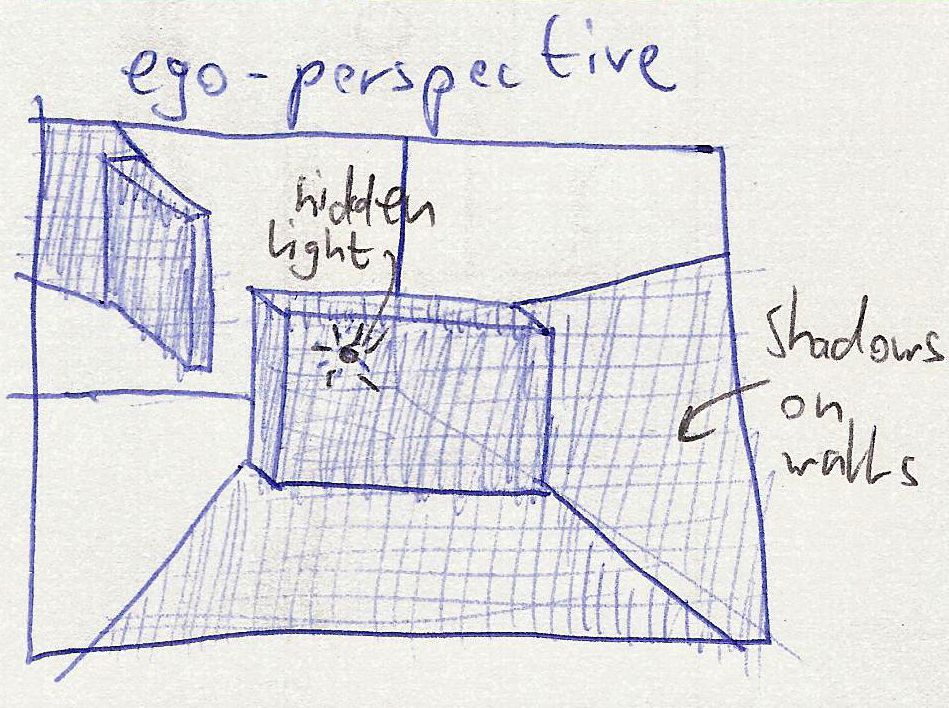 ego-perspective
hidden
light
shadows
on
walls